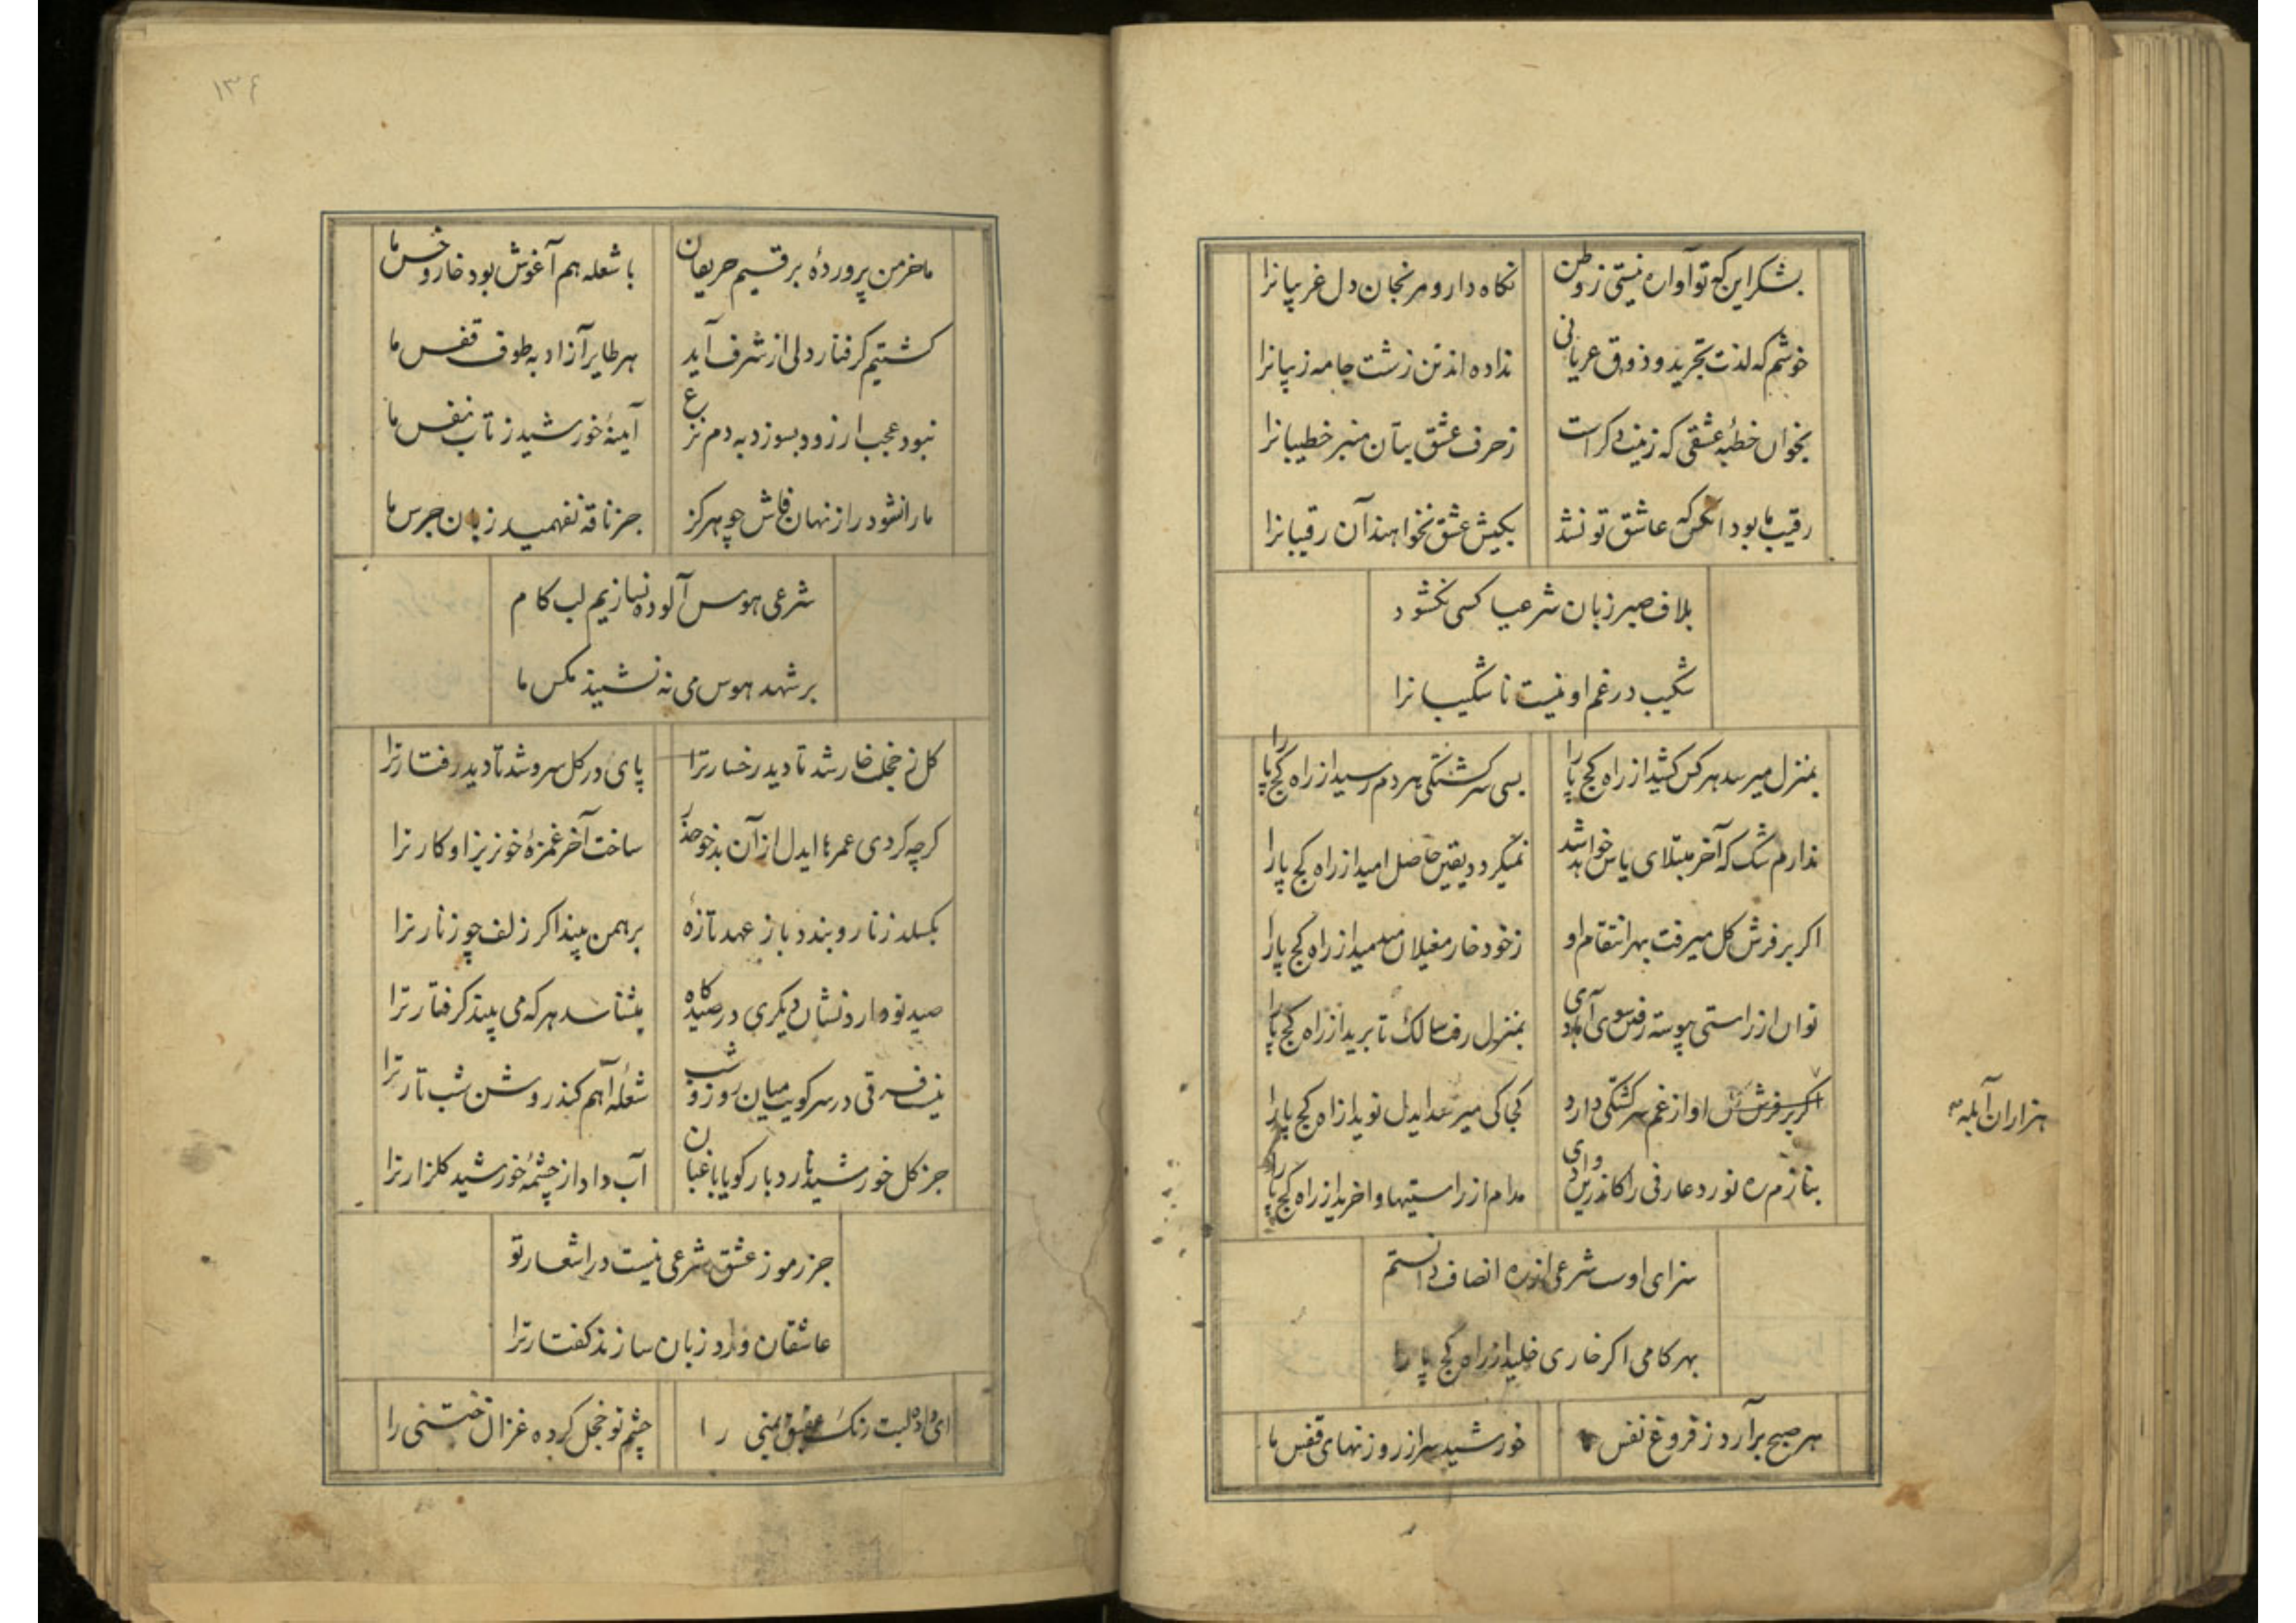 بشکر این که تو آواره نیستی ز وطن نکاه دار و مرنجان دل غریبانرا
خوشم که لذت تجرید و ذوق عریانی نداده اند تن زشت جامه زیبانرا
بخوان خطبه عشقی که زینت دکر است ز حرف عشق بتان منبر خطیبانرا
رقیب ما بود آنکس که عاشق تو نشد بکیش عشق نخواهند آن رقیبانرا
بلاف صبر زبان شرعیا کسی نکشود
شکیب در غم او نیست ناشکیبانرا
بمنزل میرسد هر کس کشید از راه کج پا را بسی سرکشتکی هر دم رسید از راه کج پا را
ندارم شک که آخر مبتلای یاس خواهد شد نمیکردد یقین حاصل امید از راه کج پا را
اکر بر فرش کل میرفت بهر انتقام او ز خود خار مغیلان میدمید از راه کج پا را
توان از راستی پیوسته رفتن سوی آبادی بمنزل رفت سالک تا برید از راه کج پا را
اکر بر فرش او از غم سرکشتکی دارد کجا کی میرسد ایدل نوید از راه کج پا را
هزاران آبله
بنازم ره نورد عارفی را کاندرین وادی مدام از راستیها واخرید از راه کج پا را
سزای اوست شرعی از ره انصاف دانستم
بهر کامی اکر خاری خلید از راه کج پا را
هر صبح برآرد ز فروغ نفس ما خورشید سر از روزنهای قفس ما
۱۳۴
ما خرمن پروردهٔ برقیم حریفان با شعله هم آغوش بود خار و خس ما
کشتیم کرفتار دلی از شرف آید هر طایر آزاد به طوف قفس ما
نبود عجب ار زود بسوزد به دم نزع آینهٔ خورشید ز تاب نفس ما
ما را نشود راز نهان فاش چو هرکز جز ناقه نفهمید زبان جرس ما
شرعی هوس آلوده نسازیم لب کام
بر شهد هوس می نه نشیند مکس ما
کل ز خجلت خار شد تا دید رخسار ترا پای در کل سرو شد تا دید رفتار ترا
کرچه کردی عمرها ایدل از آن بدخو حذر ساخت آخر غمزهٔ خونریز او کار ترا
بکسلد زنار و بندد باز عهد تازهٔ برهمن بیند اکر زلف چو زنار ترا
صید تو دارد نشان دیکری در صیدکاه میشناسد هر که می بیند کرفتار ترا
نیست فرقی در سر کویت میان روز و شب شعلهٔ آهم کند روشن شب تار ترا
جز کل خورشید نارد بار کویا باغبان آب داد از چشمهٔ خورشید کلزار ترا
جز رموز عشق شرعی نیست در اشعار تو
عاشقان ورد زبان سازند کفتار ترا
ای داده لبت رنک عقیق یمنی را چشم تو خجل کرده غزال ختنی را